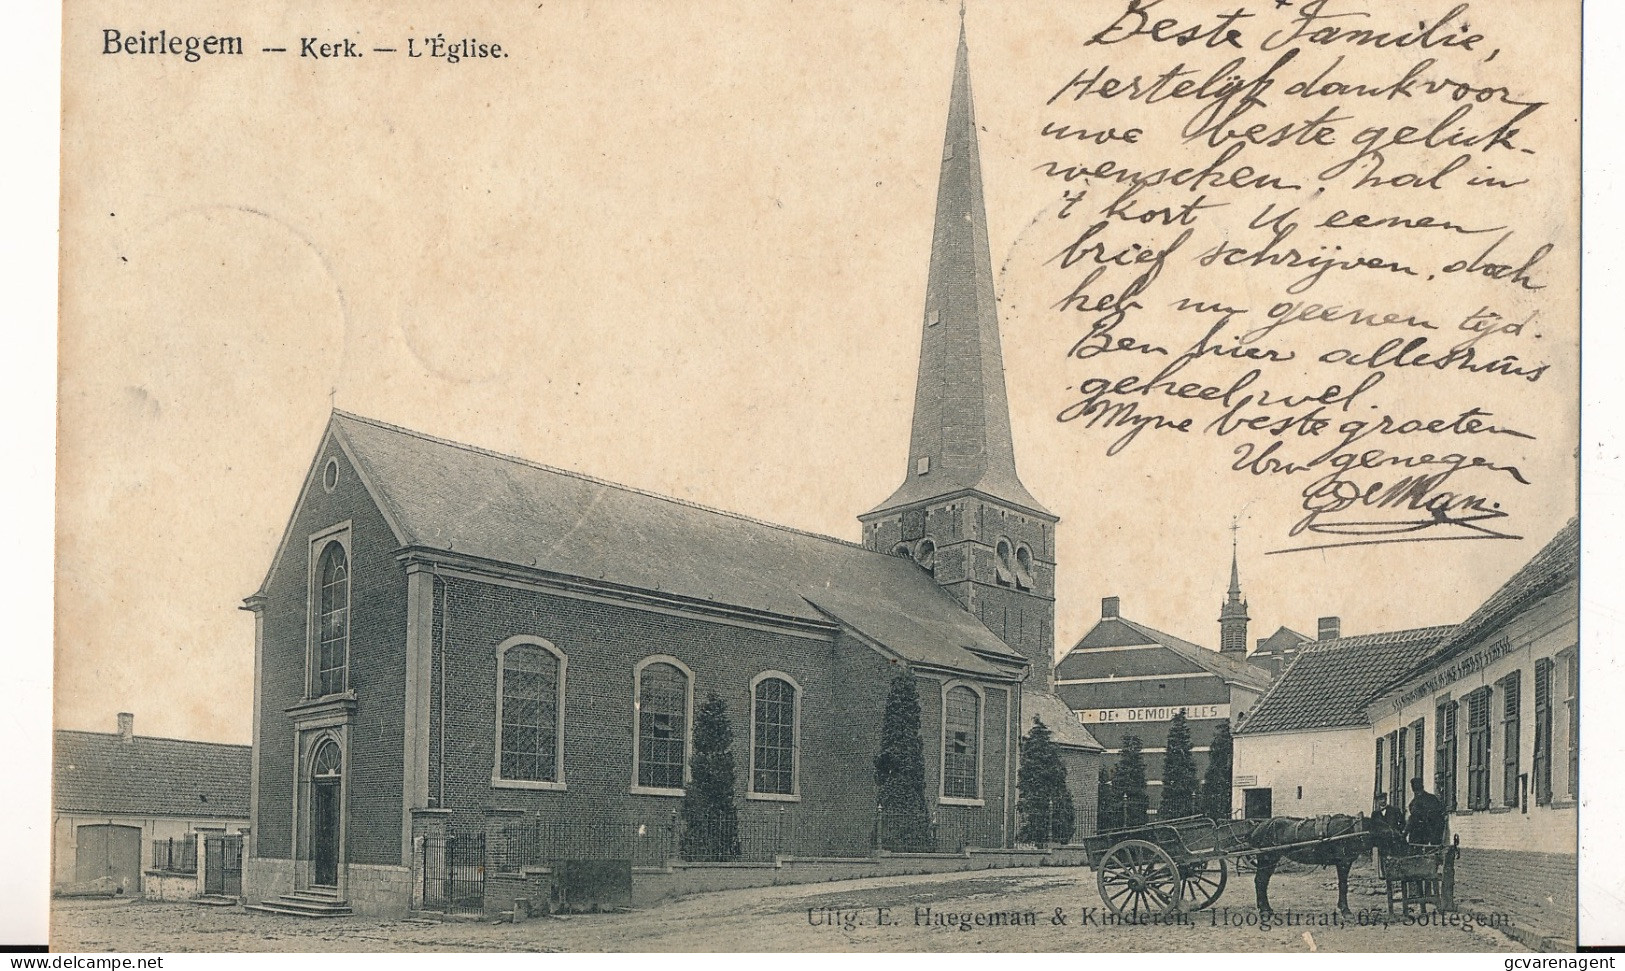 Beirlegem — Kerk. — L'Église.
Beste Familie,
Hertelijk dank voor
uwe beste geluk-
wenschen. Zal in
't kort U eenen
brief schrijven, doch
heb nu geenen tijd.
Ben hier alleszins
geheel wel.
Myne beste groeten
Uw genegen
De Man.
T · DE · DEMOISELLES
Uitg. E. Haegeman & Kinderen, Hoogstraat, 67, Sottegem.
delcampe.net
gcvarenagent